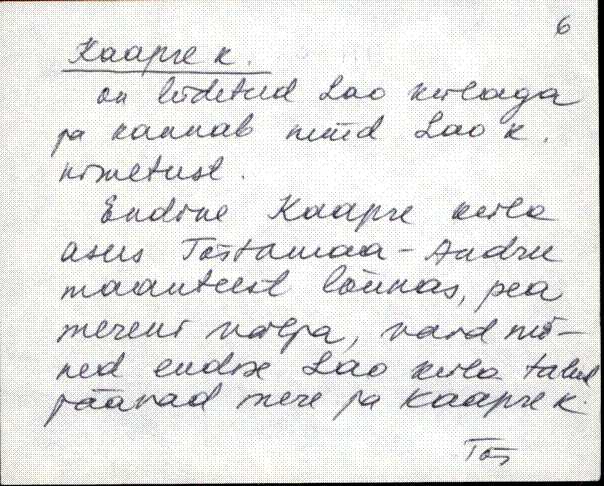 6
Kaapre k.
on liidetud Lao külaga
ja kannab nüüd Lao k.
nimetust.
Endine Kaapre küla
asus Tõstamaa-Audru
maanteest lõunas, pea
mereni välja, vaid mõ-
ned endise Lao küla talud
jäävad mere ja Kaapre k.
Tõs